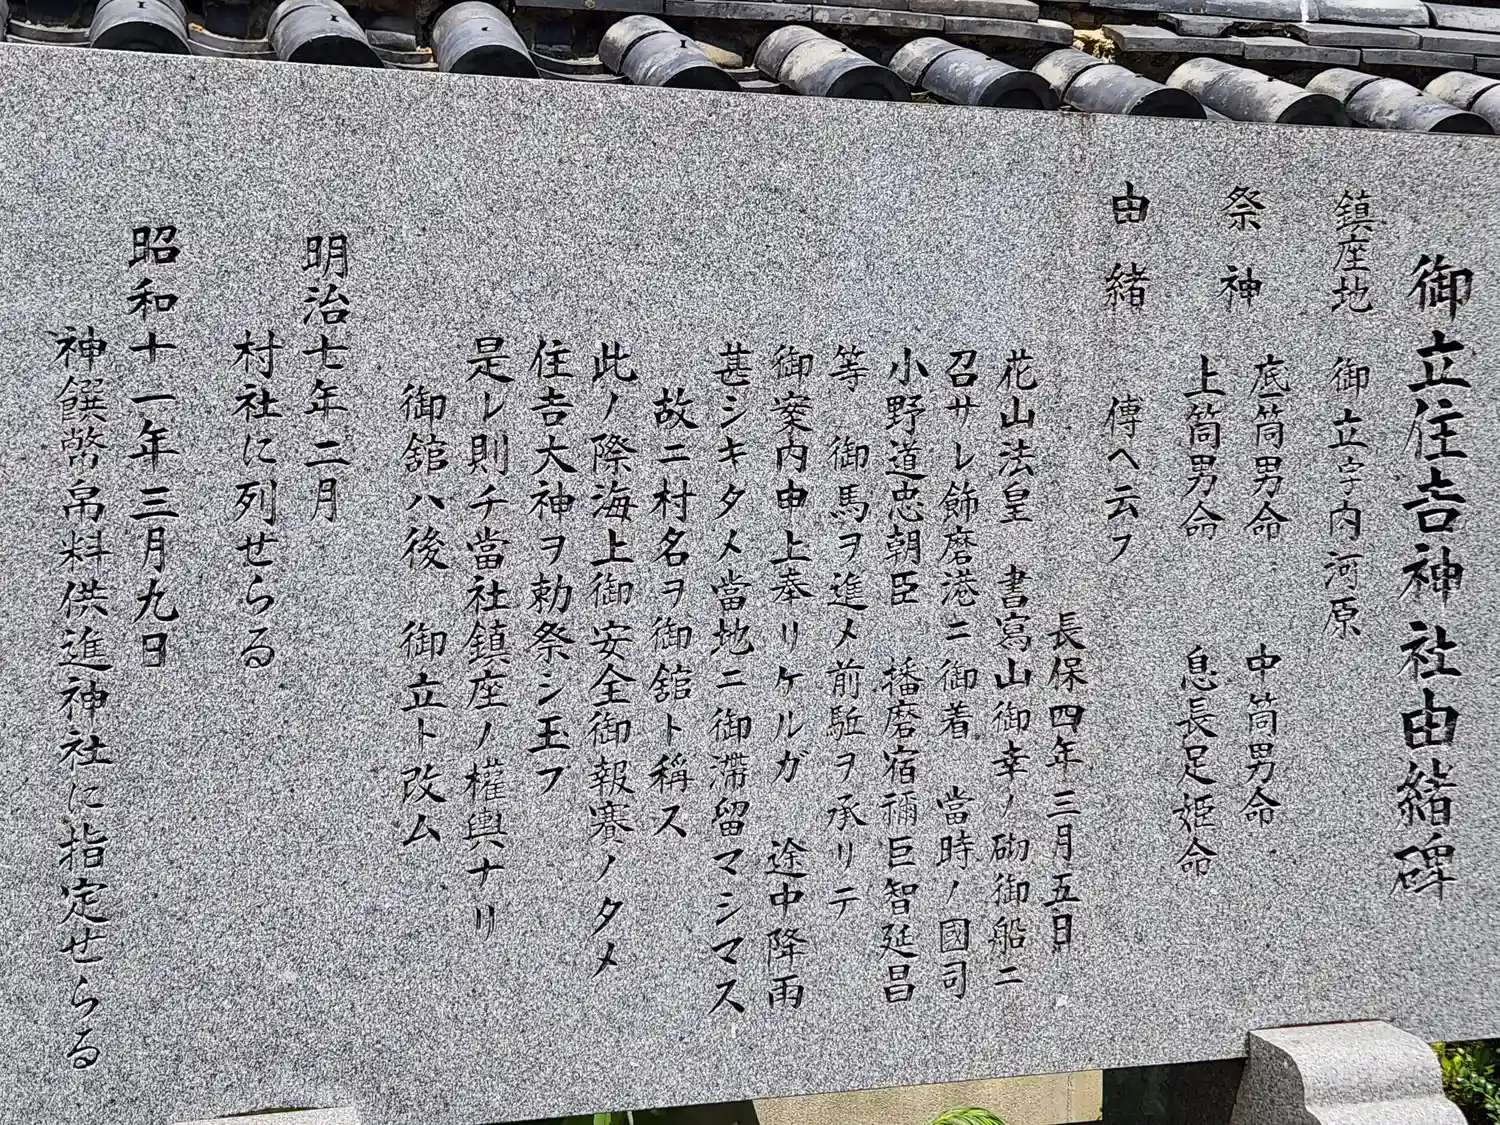 御立住吉神社由緒碑
鎮座地 御立字内河原
祭神 底筒男命 中筒男命
上筒男命 息長足姫命
由緒 傳ヘ云フ
長保四年三月五日
花山法皇 書寫山御幸ノ砌御船ニ
召サレ飾磨港ニ御着 當時ノ國司
小野道忠朝臣 播磨宿禰巨智延昌
等 御馬ヲ進メ前駈ヲ承リテ
御案内申上奉リケルガ 途中降雨
甚シキタメ當地ニ御滞留マシマス
故ニ村名ヲ御舘ト稱ス
此ノ際海上御安全御報賽ノタメ
住吉大神ヲ勅祭シ玉フ
是レ則チ當社鎮座ノ權輿ナリ
御舘ハ後 御立ト改ム
明治七年二月
村社に列せらる
昭和十一年三月九日
神饌幣帛料供進神社に指定せらる